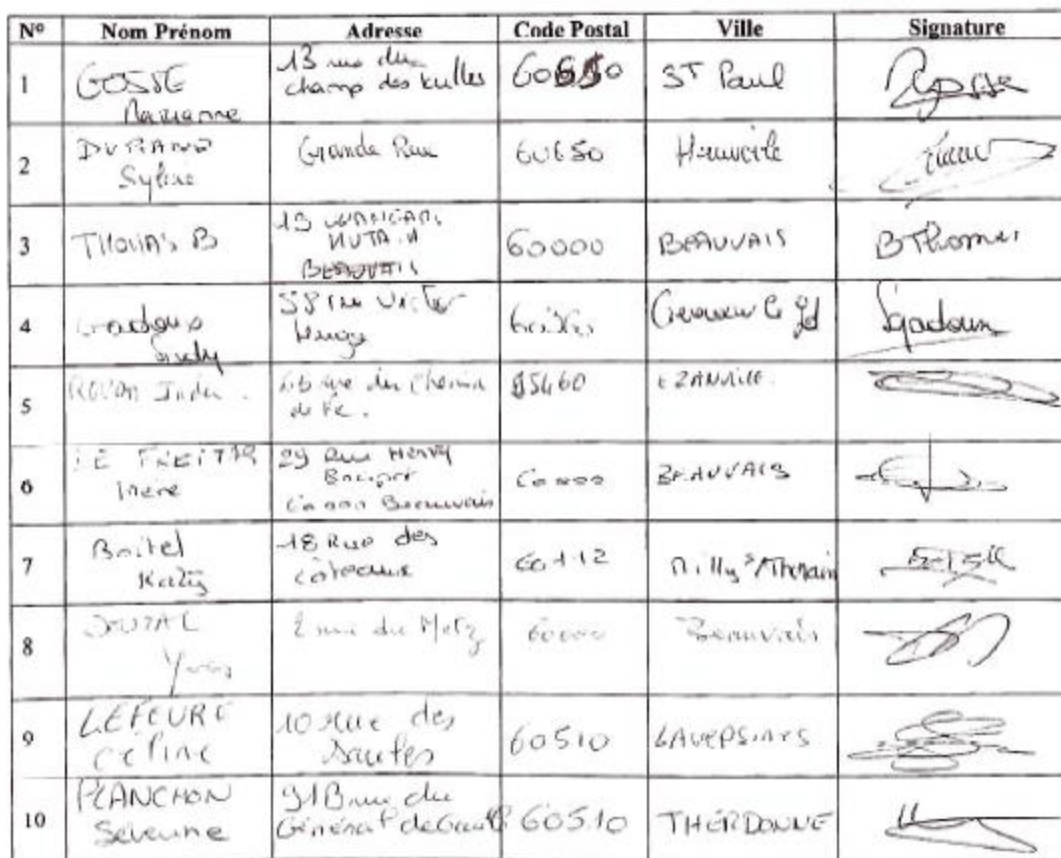 N° Nom Prénom Adresse Code Postal Ville Signature
1 GOSSE Marianne 13 rue du champ des 60650 ST Paul
2 DURAND Sylvie Grande Rue 60650
3 THOMAS B 13 BEAUVAIS 60000 BEAUVAIS B Thomas
4 58 rue Victor Hugo
5 rue du Chemin de 95460 EZANVILLE
6 Irène 29 Rue Henry 60000 Beauvais 60000 BEAUVAIS
7 Boitel Katty 18 Rue des côteaux 60112 Milly s/Therain
8 Yves 2 rue du Metz 60000 Beauvais
9 LEFEVRE Céline 10 rue des 60510 LAVERSINES
10 PLANCHON Séverine 91B rue du Général de Gaulle 60510 THERDONNE